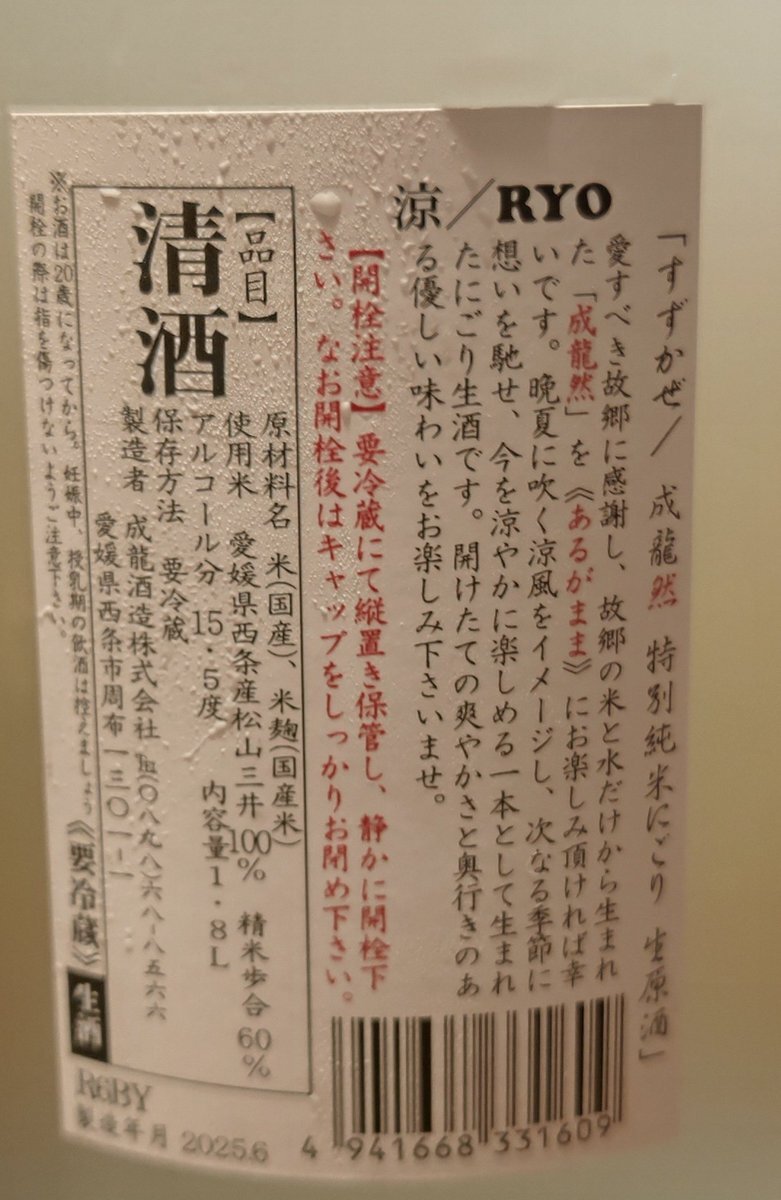 「すずかぜ／ 成龍然 特別純米にごり 生原酒」
涼／RYO
愛すべき故郷に感謝し、故郷の米と水だけから生まれ
た「成龍然」を《あるがまま》にお楽しみ頂ければ幸
いです。晩夏に吹く涼風をイメージし、次なる季節に
想いを馳せ、今を涼やかに楽しめる一本として生まれ
たにごり生酒です。開けたての爽やかさと奥行きのあ
る優しい味わいをお楽しみ下さいませ。
【開栓注意】要冷蔵にて縦置き保管し、静かに開栓下
さい。なお開栓後はキャップをしっかりお閉め下さい。
【品目】
清酒
原材料名 米(国産)、米麹(国産米)
使用米 愛媛県西条産松山三井100% 精米歩合 60%
アルコール分 15.5度 内容量1.8L
保存方法 要冷蔵
製造者 成龍酒造株式会社 ℡(〇八九八)六八-八五六六
愛媛県西条市周布一三〇一-一
※お酒は20歳になってから。妊娠中、授乳期の飲酒は控えましょう
開栓の際は指を傷つけないようご注意下さい。
《要冷蔵》
生酒
R6BY
製造年月 2025.6
4 941668 331609